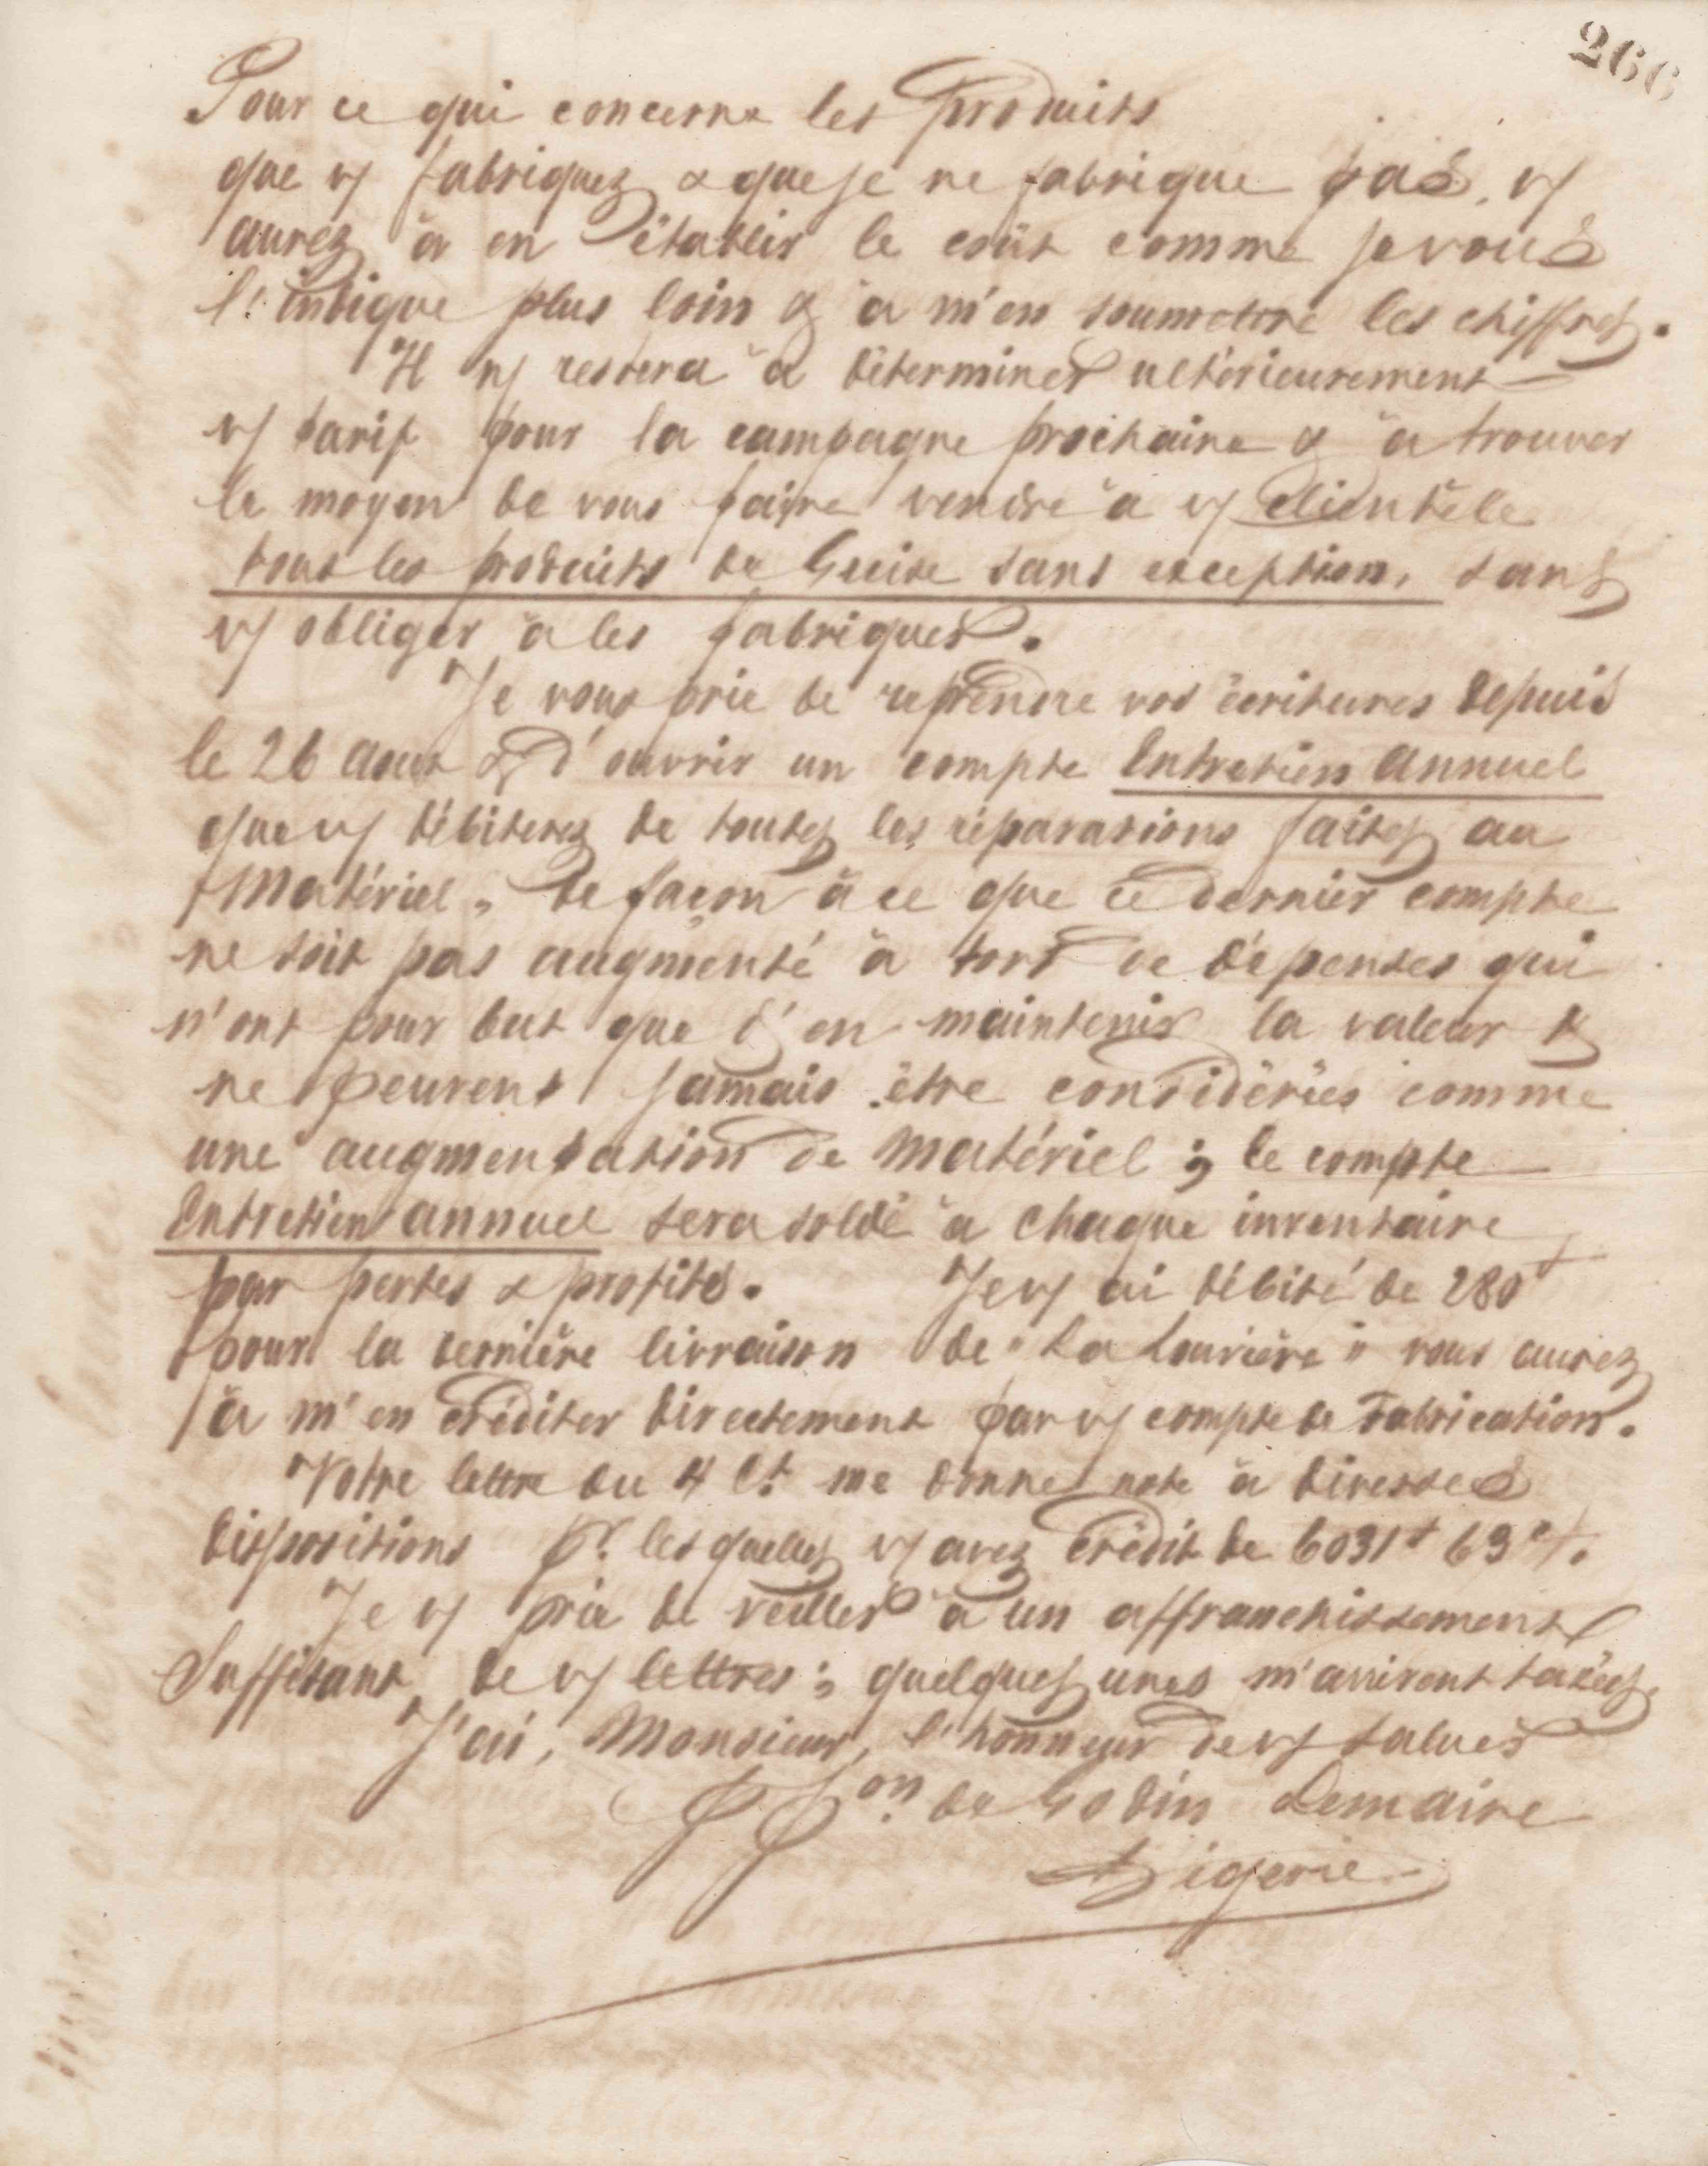 266
Pour ce qui concerne les produits
que vs fabriquez & que je ne fabrique pas, vs
aurez à en établir le coût comme je vous
l'indique plus loin & à m'en soumettre les chiffres.
Il vs restera à déterminer ultérieurement
vs tarif pour la campagne prochaine & à trouver
le moyen de vous faire vendre à vs clientèle
tous les produits de Guise sans exception, sans
vs obliger à les fabriquer.
Je vous prie de reprendre vos écritures depuis
le 26 Aout & d'ouvrir un compte Entretien Annuel
que vs débiterez de toutes les réparations faites au
Matériel, de façon à ce que ce dernier compte
ne soit pas augmenté à tort de dépenses qui
n'ont pour but que d'en maintenir la valeur &
ne peuvent jamais être considérées comme
une augmentation de Matériel ; le compte
Entretien annuel sera soldé à chaque inventaire
par pertes & profits. Je vs ai débité de 280 f
pour la dernière livraison de "La Louvière" vous aurez
à m'en créditer directement par vs compte de Fabrication.
Votre lettre du 4 ct me donne note à diverses
dispositions pr lesquelles vs avez crédit de 6031 f 63 ct.
Je vs prie de veiller à un affranchissement
Suffisant de vs lettres ; quelques unes m'arrivent taxées.
J'ai, Monsieur, l'honneur de vs saluer
P Pon de Godin Lemaire